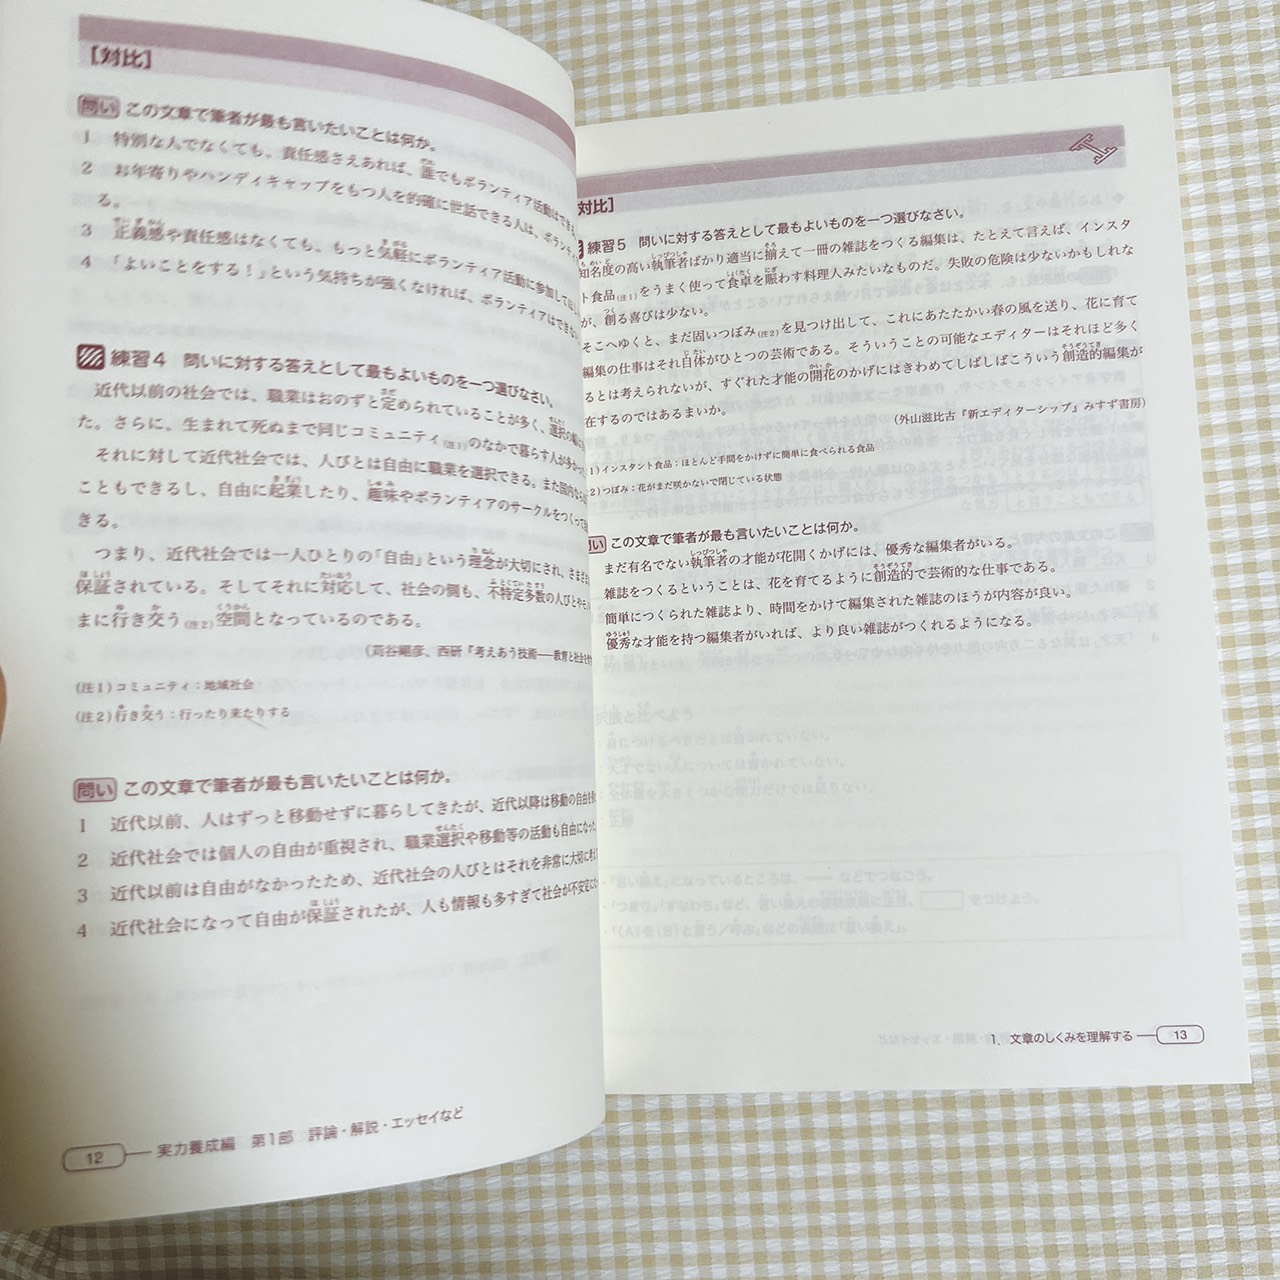 [対比]
問い この文章で筆者が最も言いたいことは何か。
1 特別な人でなくても、責任感さえあれば、誰でもボランティア活動はでき
2 お年寄りやハンディキャップをもつ人を的確に世話できる人は、ボランティ
る。
3 正義感や責任感はなくても、もっと気軽にボランティア活動に参加してほし
4 「よいことをする!」という気持ちが強くなければ、ボランティアはできない
練習4 問いに対する答えとして最もよいものを一つ選びなさい。
近代以前の社会では、職業はおのずと定められていることが多く、選択の幅
た。さらに、生まれて死ぬまで同じコミュニティ(注1)のなかで暮らす人が多かっ
それに対して近代社会では、人びとは自由に職業を選択できる。また国内なら
こともできるし、自由に起業したり、趣味やボランティアのサークルをつくって
きる。
つまり、近代社会では一人ひとりの「自由」という理念が大切にされ、さまざま
保証されている。そしてそれに対応して、社会の側も、不特定多数の人びとやモ
まに行き交う(注2)空間となっているのである。
(苅谷剛彦、西研『考えあう技術――教育と社会を
(注1)コミュニティ:地域社会
(注2)行き交う:行ったり来たりする
問い この文章で筆者が最も言いたいことは何か。
1 近代以前、人はずっと移動せずに暮らしてきたが、近代以降は移動の自由を
2 近代社会では個人の自由が重視され、職業選択や移動等の活動も自由になった
3 近代以前は自由がなかったため、近代社会の人びとはそれを非常に大切に考え
4 近代社会になって自由が保証されたが、人も情報も多すぎて社会が不安定にな
12 実力養成編 第1部 評論・解説・エッセイなど
対比]
練習5 問いに対する答えとして最もよいものを一つ選びなさい。
知名度の高い執筆者ばかり適当に揃えて一冊の雑誌をつくる編集は、たとえて言えば、インスタ
ト食品(注1)をうまく使って食卓を賑わす料理人みたいなものだ。失敗の危険は少ないかもしれな
が、創る喜びは少ない。
そこへゆくと、まだ固いつぼみ(注2)を見つけ出して、これにあたたかい春の風を送り、花に育て
編集の仕事はそれ自体がひとつの芸術である。そういうことの可能なエディターはそれほど多く
るとは考えられないが、すぐれた才能の開花のかげにはきわめてしばしばこういう創造的編集が
在するのではあるまいか。
(外山滋比古『新エディターシップ』みすず書房)
1)インスタント食品:ほとんど手間をかけずに簡単に食べられる食品
2)つぼみ:花がまだ咲かないで閉じている状態
問い この文章で筆者が最も言いたいことは何か。
まだ有名でない執筆者の才能が花開くかげには、優秀な編集者がいる。
雑誌をつくるということは、花を育てるように創造的で芸術的な仕事である。
簡単につくられた雑誌より、時間をかけて編集された雑誌のほうが内容が良い。
優秀な才能を持つ編集者がいれば、より良い雑誌がつくれるようになる。
1. 文章のしくみを理解する 13